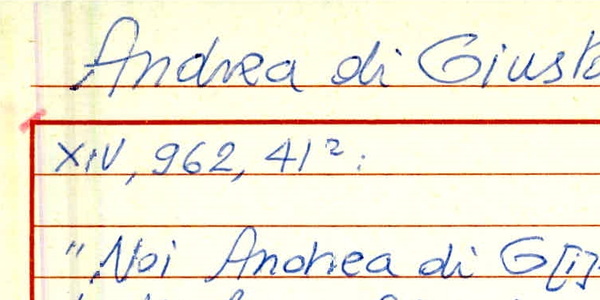 Andrea di Giusto
XIV, 962, 41²:
"Noi Andrea di G[i]